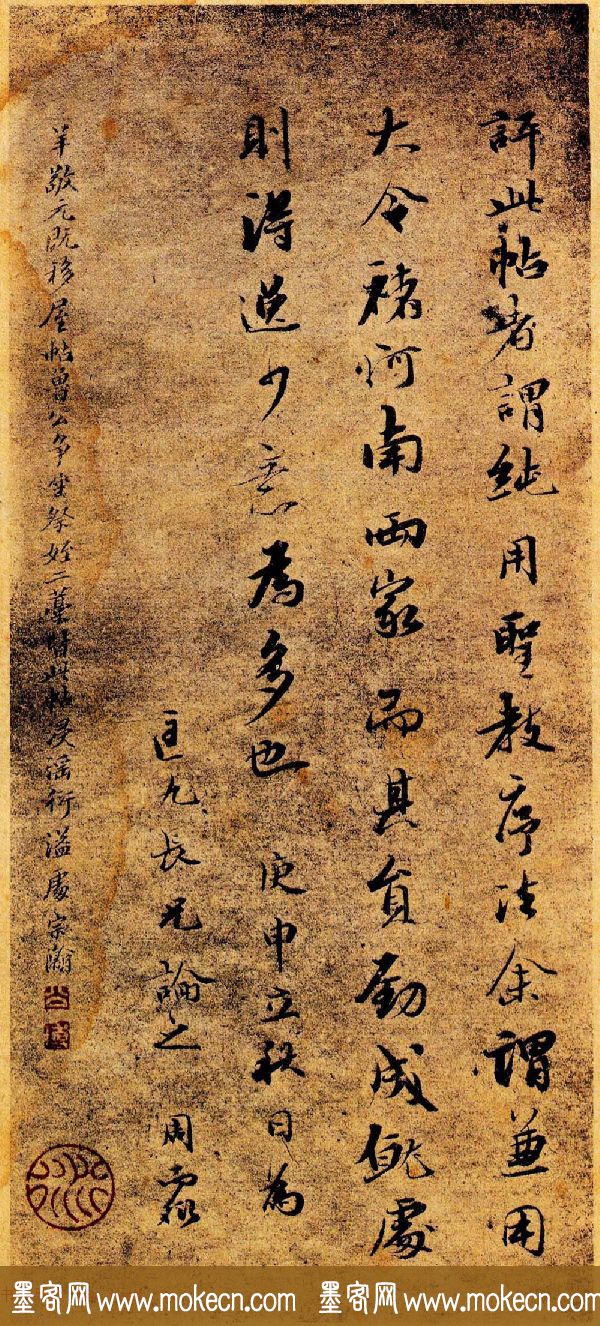 評此帖者謂純用聖教序法余謂兼用
大令褚河南兩家而其負勁成就處
則得過少意為多也 庚申立秋日為
匡九長兄論之 周霖
羊敬元既移屋帖曾公爭坐祭姪二藁皆此帖溢衍溢處宗瀚
墨客网 www.mokecn.com 墨客网 www.mokecn.com